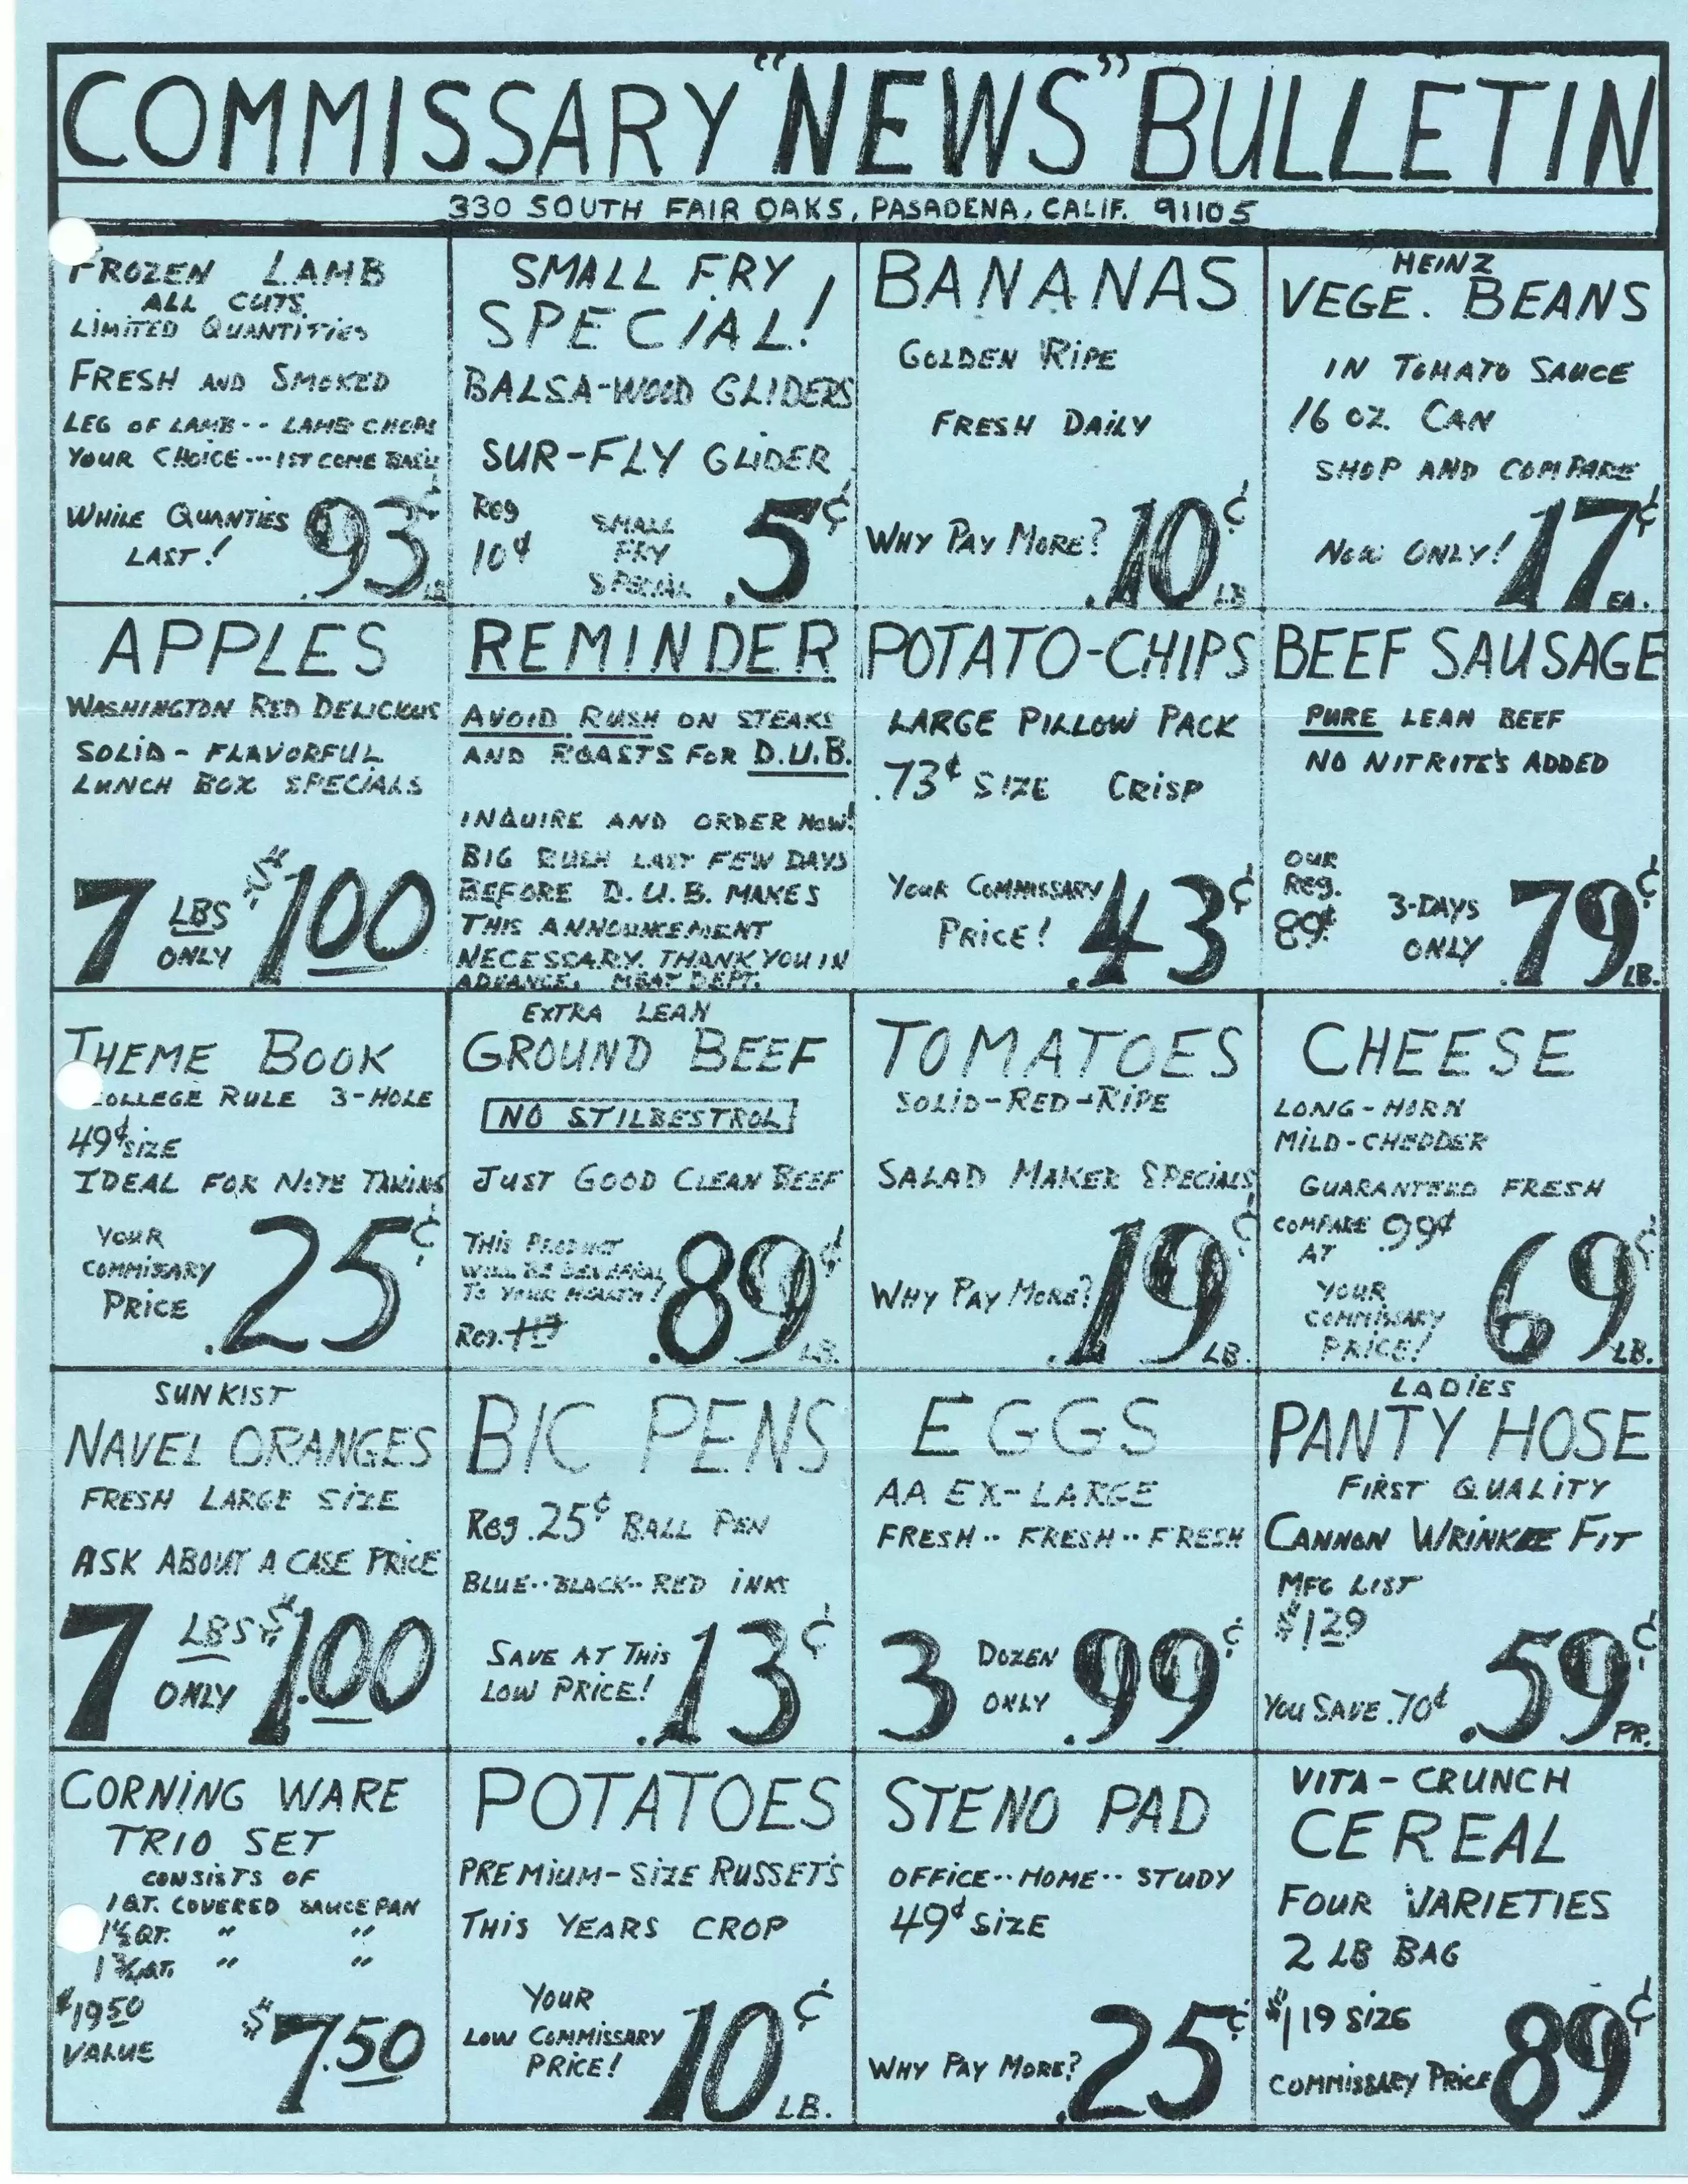 COMMISSARY "NEWS" BULLETIN
330 SOUTH FAIR OAKS, PASADENA, CALIF. 91105
FROZEN LAMB
ALL CUTS
LIMITED QUANTITIES
FRESH AND SMOKED
LEG OF LAMB-- LAMB CHOPS
YOUR CHOICE---1ST COME BASIS
WHILE QUANTIES
LAST!
.93¢
LB
SMALL FRY
SPECIAL!
BALSA-WOOD GLIDERS
SUR-FLY GLIDER
Reg
10¢
SMALL
FRY
SPECIAL
.5¢
BANANAS
GOLDEN RIPE
FRESH DAILY
WHY PAY MORE?
.10¢
LB
HEINZ
VEGE. BEANS
IN TOMATO SAUCE
16 OZ. CAN
SHOP AND COMPARE
NOW ONLY!
.17¢
EA.
APPLES
WASHINGTON RED DELICIOUS
SOLID - FLAVORFUL
LUNCH BOX SPECIALS
7 LBS
ONLY
$1.00
REMINDER
AVOID RUSH ON STEAKS
AND ROASTS FOR D.U.B.
INQUIRE AND ORDER NOW!
BIG RUSH LAST FEW DAYS
BEFORE D.U.B. MAKES
THIS ANNOUNCEMENT
NECESSARY. THANK YOU IN
ADVANCE. MEAT DEPT.
POTATO-CHIPS
LARGE PILLOW PACK
.73¢ SIZE CRISP
YOUR COMMISSARY
PRICE!
.43¢
BEEF SAUSAGE
PURE LEAN BEEF
NO NITRITE'S ADDED
OUR
Reg.
89¢
3-DAYS
ONLY
.79¢
LB.
THEME BOOK
COLLEGE RULE 3-HOLE
49¢ SIZE
IDEAL FOR NOTE TAKING
YOUR
COMMISSARY
PRICE
.25¢
EXTRA LEAN
GROUND BEEF
NO STILBESTROL
JUST GOOD CLEAN BEEF
THIS PRODUCT
WILL BE BENEFICIAL
TO YOUR HEALTH!
Reg. 1.19
.89¢
LB.
TOMATOES
SOLID-RED-RIPE
SALAD MAKER SPECIALS
WHY PAY MORE?
.19¢
LB.
CHEESE
LONG-HORN
MILD-CHEDDER
GUARANTEED FRESH
COMPARE .99¢
AT
YOUR
COMMISSARY
PRICE!
69¢
LB.
SUNKIST
NAVEL ORANGES
FRESH LARGE SIZE
ASK ABOUT A CASE PRICE
7 LBS
ONLY
$1.00
BIC PENS
Reg .25¢ BALL PEN
BLUE--BLACK--RED INKS
SAVE AT THIS
LOW PRICE!
.13¢
EGGS
AA EX-LARGE
FRESH-- FRESH-- FRESH
3 DOZEN
ONLY
.99¢
LADIES
PANTY HOSE
FIRST QUALITY
CANNON WRINKLE FIT
MFG LIST
$1.29
YOU SAVE .70¢
.59¢
PR.
CORNING WARE
TRIO SET
CONSISTS OF
1 QT. COVERED SAUCEPAN
1½ QT. " "
1¾ QT. " "
$19.50
VALUE
$7.50
POTATOES
PREMIUM-SIZE RUSSET'S
THIS YEARS CROP
YOUR
LOW COMMISSARY
PRICE!
10¢
LB.
STENO PAD
OFFICE--HOME--STUDY
49¢ SIZE
WHY PAY MORE?
.25¢
VITA-CRUNCH
CEREAL
FOUR VARIETIES
2 LB BAG
$1.19 SIZE
COMMISSARY PRICE
89¢